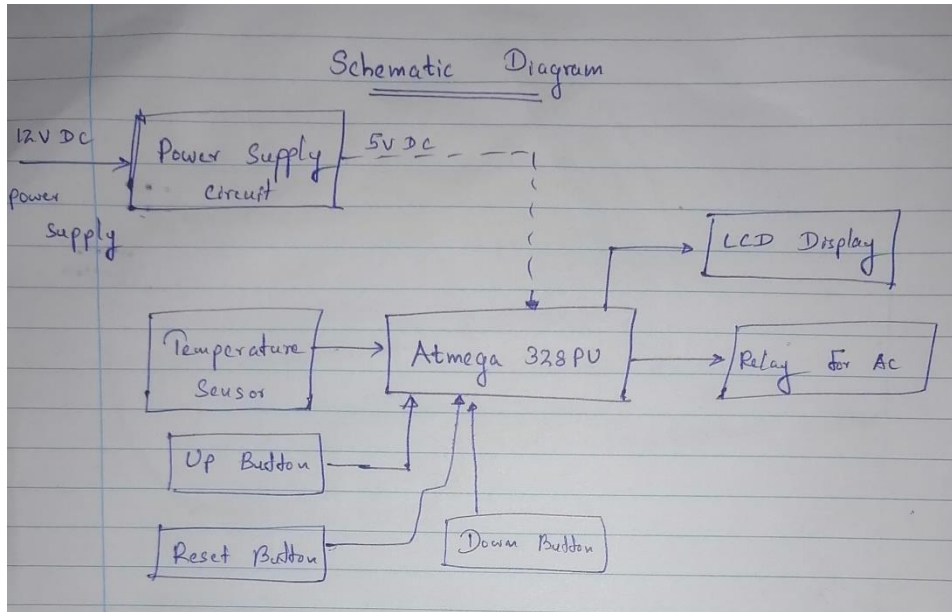 Schematic Diagram
12V DC
power
supply
Power Supply
circuit
5V DC
LCD Display
Temperature
Sensor
Atmega 328PU
Relay for AC
Up Button
Reset Button
Down Button